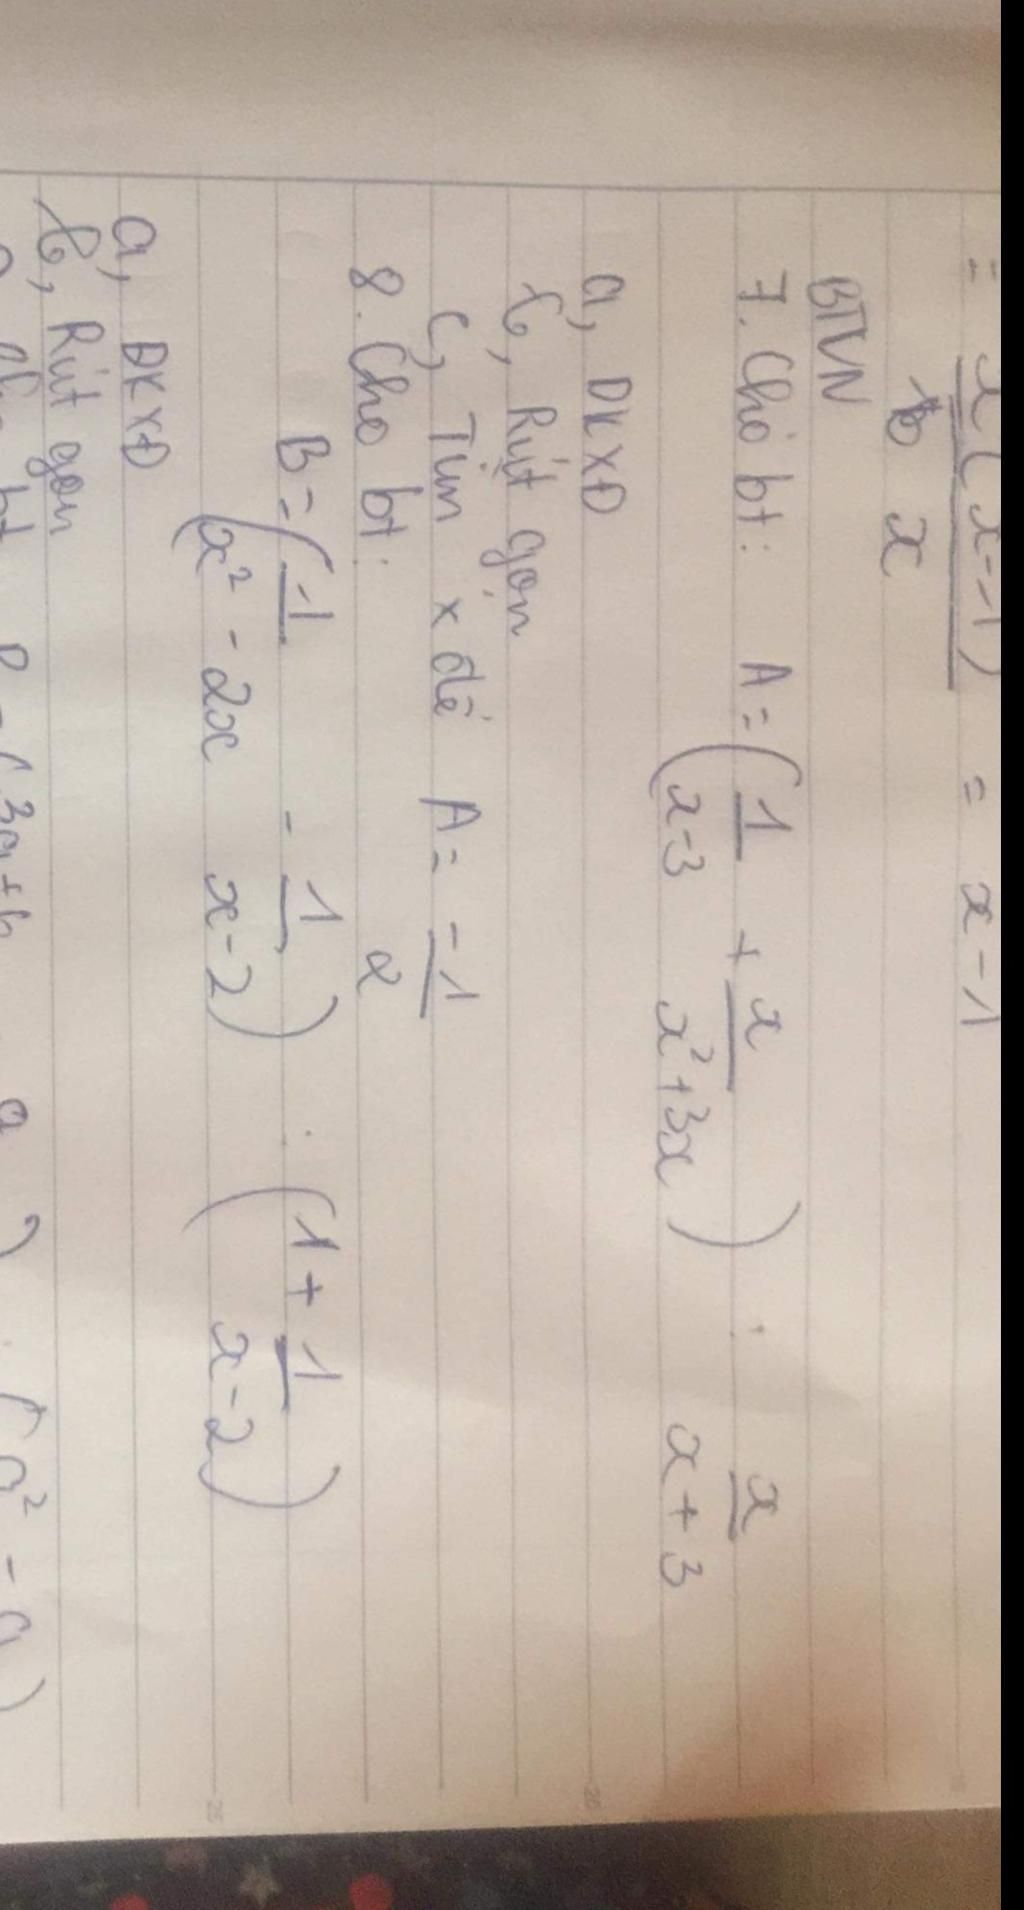 = x(x-1) / x = x-1
BTVN
7. Cho bt: A = (1/(x-3) + x/(x²+3x)) : x/(x+3)
a, ĐKXĐ
b, Rút gọn
c, Tìm x để A = -1/2
8. Cho bt:
B = (1/(x²-2x) - 1/(x-2)) : (1 + 1/(x-2))
a, ĐKXĐ
b, Rút gọn